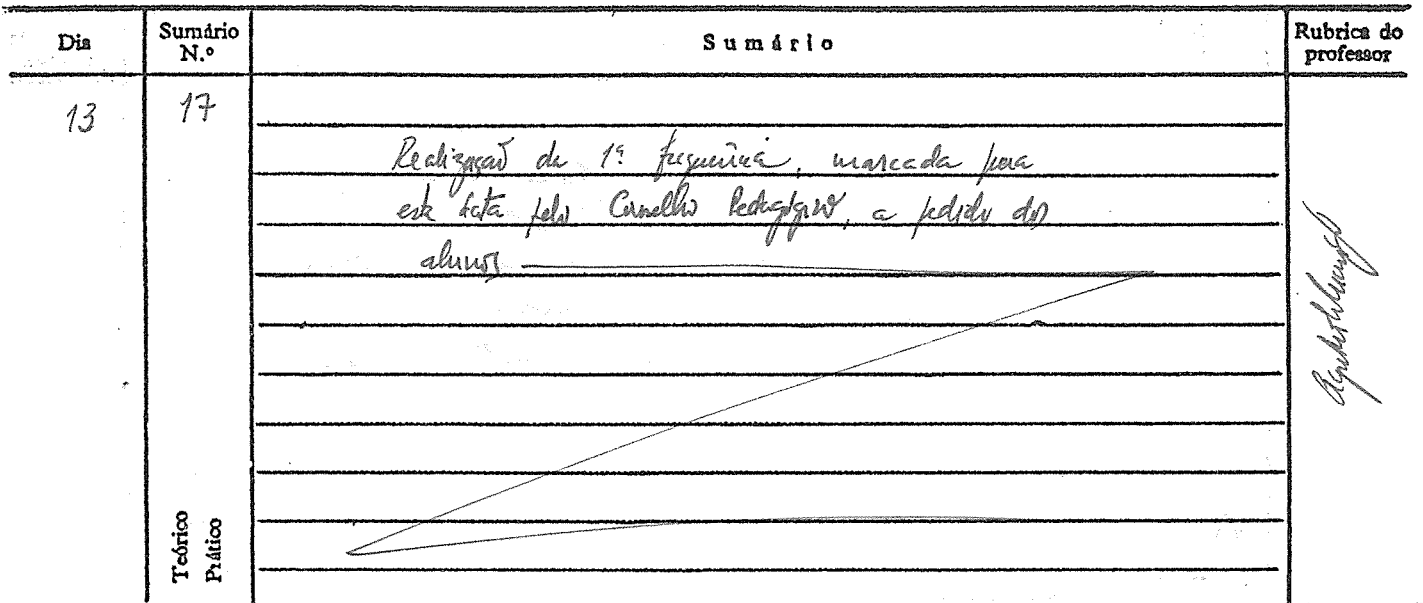 Dia
Sumário
N.º
Sumário
Rubrica do
professor
13
17
Realização da 1ª frequência, marcada para
esta data pelo Conselho Pedagógico, a pedido dos
alunos
Teórico
Prático